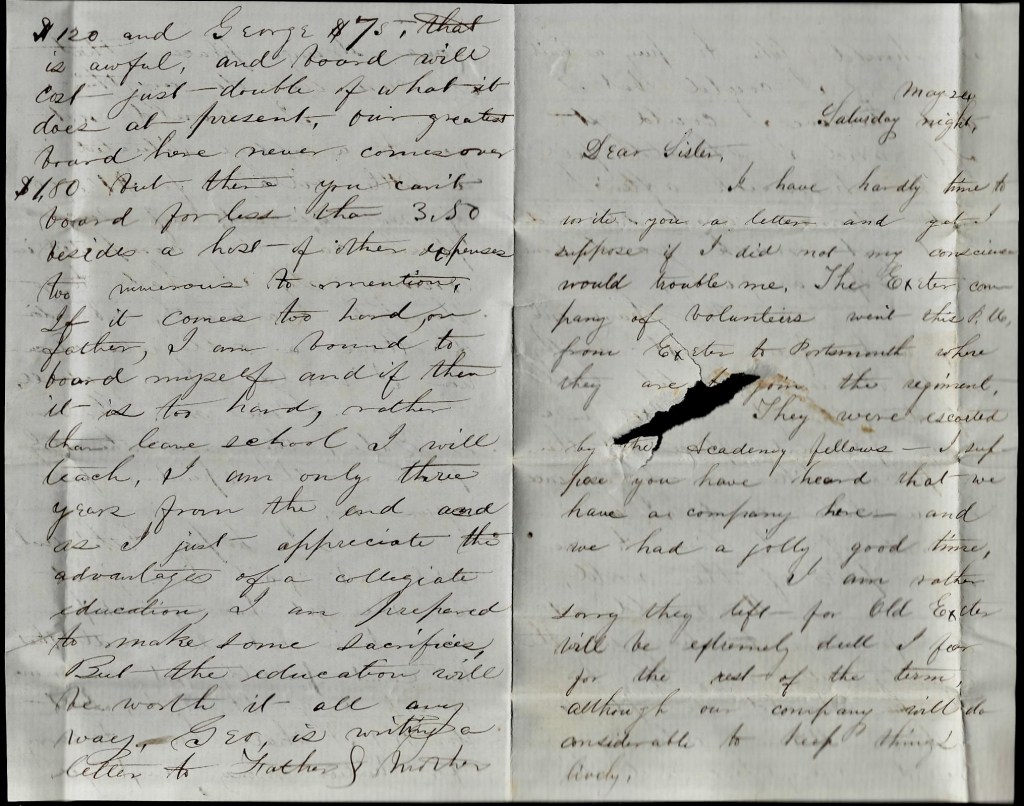 $120 and George $75, that
is awful, and board will
cost just double of what it
does at present, our greatest
board here never comes over
$1,80 but there you can't
board for less than 3,50
besides a host of other expenses
too numerous to mention,
If it comes too hard, on
father, I am bound to
board myself and if then
it is too hard, rather
than leave school I will
teach, I am only three
years from the end and
as I just appreciate the
advantages of a collegiate
education, I am prepared
to make some sacrifices,
But the education will
be worth it all any
way, Geo, is writing a
letter to Father & Mother
May 24
Saturday night,
Dear Sister,
I have hardly time to
write you a letter and yet I
suppose if I did not my conscience
would trouble me. The Exeter com
pany of volunteers went this P.M,
from Exeter to Portsmouth where
they are to join the regiment,
They were escorted
by the Academy fellows — I sup
pose you have heard that we
have a company here — and
we had a jolly good time,
I am rather
sorry they left for Old Exeter
will be extremely dull I fear
for the rest of the term,
although our company will do
considerable to keep things
lively,